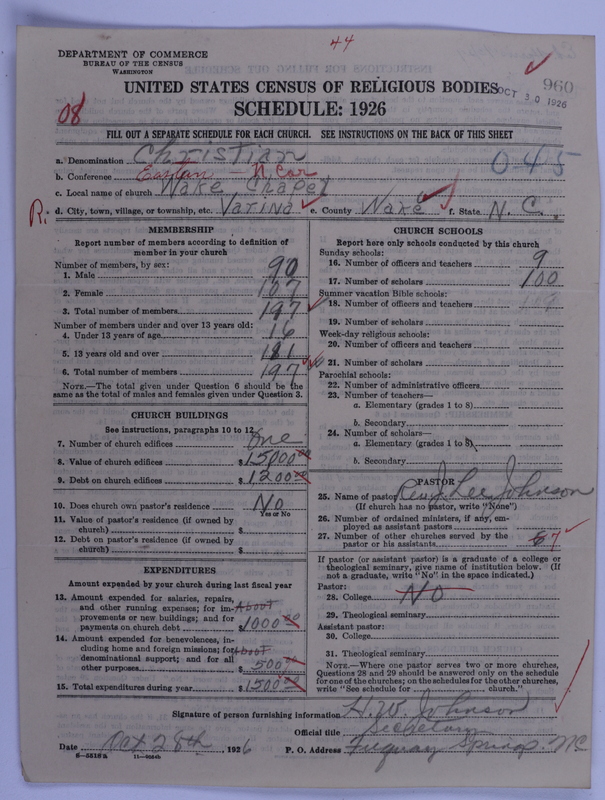 44
DEPARTMENT OF COMMERCE
BUREAU OF THE CENSUS
WASHINGTON
960
UNITED STATES CENSUS OF RELIGIOUS BODIES
OCT 30 1926
SCHEDULE: 1926
08
FILL OUT A SEPARATE SCHEDULE FOR EACH CHURCH. SEE INSTRUCTIONS ON THE BACK OF THIS SHEET
a. Denomination Christian
0-45
b. Conference Eastern - N. Car
c. Local name of church Wake Chapel
R. d. City, town, village, or township, etc. Varina e. County Wake f. State N. C.
MEMBERSHIP
Report number of members according to definition of
member in your church
Number of members, by sex:
1. Male 90
2. Female 107
3. Total number of members 197
Number of members under and over 13 years old:
4. Under 13 years of age 16
5. 13 years old and over 181
6. Total number of members 197
NOTE.—The total given under Question 6 should be the
same as the total of males and females given under Question 3.
CHURCH BUILDINGS
See instructions, paragraphs 10 to 12
7. Number of church edifices One
8. Value of church edifices $15000 00
9. Debt on church edifices $1200 00
10. Does church own pastor's residence No
Yes or No
11. Value of pastor's residence (if owned by
church) $
12. Debt on pastor's residence (if owned by
church) $
EXPENDITURES
Amount expended by your church during last fiscal year
13. Amount expended for salaries, repairs,
and other running expenses; for im- About
provements or new buildings; and for
payments on church debt $1000 00
14. Amount expended for benevolences, in-
cluding home and foreign missions; for About
denominational support; and for all
other purposes $500 00
15. Total expenditures during year $1500 00
CHURCH SCHOOLS
Report here only schools conducted by this church
Sunday schools:
16. Number of officers and teachers 9
17. Number of scholars 100
Summer vacation Bible schools:
18. Number of officers and teachers 109
19. Number of scholars
Week-day religious schools:
20. Number of officers and teachers
21. Number of scholars
Parochial schools:
22. Number of administrative officers
23. Number of teachers—
a. Elementary (grades 1 to 8)
b. Secondary
24. Number of scholars—
a. Elementary (grades 1 to 8)
b. Secondary
PASTOR
25. Name of pastor Rev J Lee Johnson
(If church has no pastor, write "None")
26. Number of ordained ministers, if any, em-
ployed as assistant pastors
27. Number of other churches served by the
pastor or his assistants 7
If pastor (or assistant pastor) is a graduate of a college or
theological seminary, give name of institution below. (If
not a graduate, write "No" in the space indicated.)
Pastor:
28. College No
29. Theological seminary
Assistant pastor:
30. College
31. Theological seminary
NOTE.—Where one pastor serves two or more churches,
Questions 28 and 29 should be answered only on the schedule
for one of the churches; on the schedules for the other churches,
write "See schedule for church."
Signature of person furnishing information H. W. Johnson
Official title Secretary
Date Oct 28th 1926 P. O. Address Fuquay Springs. N C
8-5318a 11-9064b